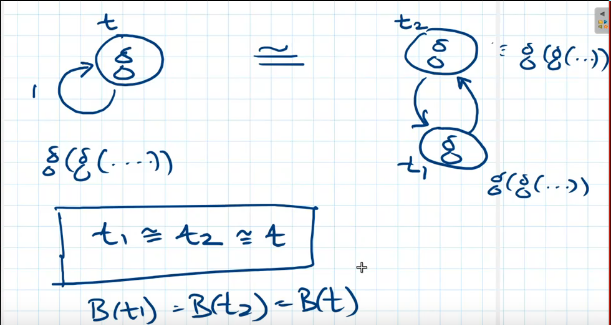 t
g
1
≅
t2
g
≡ g(g(...))
g
t1
g(g(....))
g(g(...))
t1 ≅ t2 ≅ t
B(t1) = B(t2) = B(t)